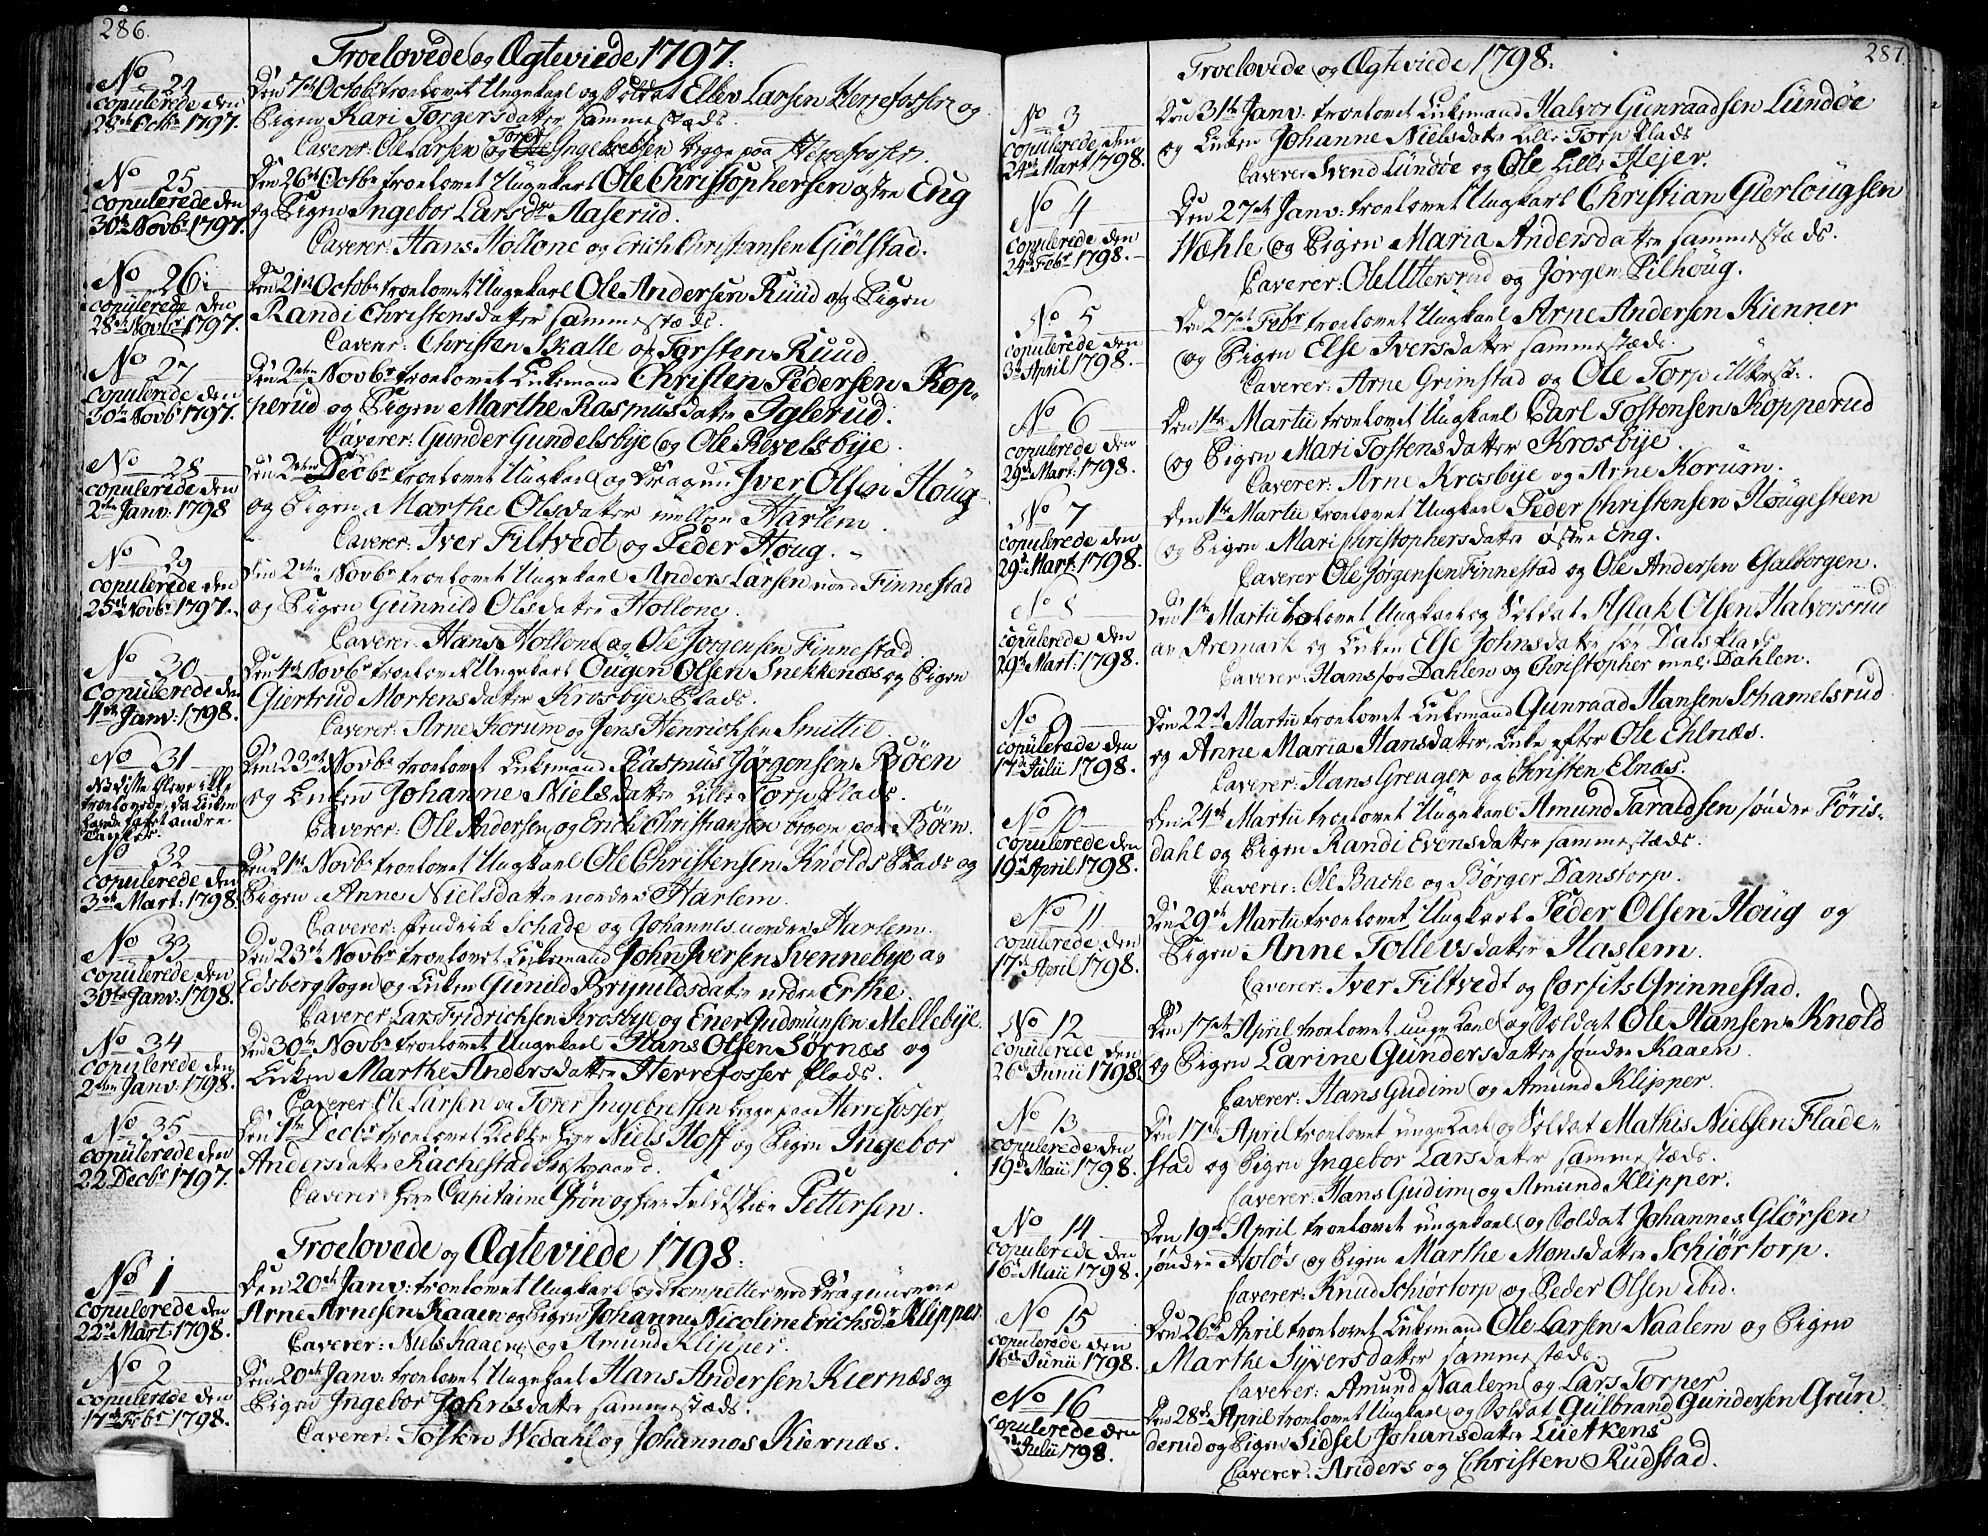 286.
Troelovede og Ægteviede 1797.
No 24
copulerede den
28de Octbr 1797.
Den 7de Octobr troelovet Ungekarl og Soldat Ellev Larsen Herrefosser og
Pigen Kari Torgersdatter sammestæds.
Caverer: Ole Larsen og Torer Ingebretsen begge paa Herrefosser.
No 25
copulerede den
30te Novbr 1797.
Den 26de Octbr troelovet Ungekarl Ole Christophersen østre Eng
og Pigen Ingebor Larsdtr Aaserud.
Caverer: Hans Hollone og Erich Christiansen Giølstad.
No 26
copulerede den
28de Novbr 1797.
Den 21de Octobr troelovet Ungekarl Ole Andersen Ruud og Pigen
Randi Christensdatter sammestæds.
Caverer: Christen Skalle og Torsten Ruud
No 27
copulerede den
30te Novbr 1797.
Den 2den Novbr troelovet Enkemand Christen Pedersen Kop-
perud og Pigen Marthe Rasmusdatter Iglerud.
Caverer: Gunder Gundelsbye og Ole Revelsbye.
No 28
copulerede den
2den Janv: 1798
Den 2den Decbr troelovet Ungkarl og Dragun Iver Olsen Houg
og Pigen Marthe Olsdatter mellem Harlem.
Caverer: Iver Filtvedt og Peder Houg.
No 29
copulerede den
25de Novbr 1797.
Den 2den Novbr troelovet Ungekarl Anders Larsen nord Finnestad
og Pigen Gunnild Olsdatter Hollone.
Caverer: Hans Hollone og Ole Jørgensen Finnestad
No 30
copulerede den
4de Janv: 1798.
Den 4de Novbr troelovet Ungekarl Ougen Olsen Snekkenæs og Pigen
Giertrud Mortensdatter Krosbye Plads.
Caverer: Arne Korum og Jens Henrichsen Smittil
No 31
NB disse bleve ikke
troelovede, da Enken
havde fattet andre
Tanker.
Den 23de Novbr troelovet Enkemand Rasmus Jørgensen Bøen
og Enken Johanne Nielsdatter Lille Torp Plads.
Caverer: Ole Andersen og Erick Christiansen begge paa Bøen.
No 32
copulerede den
3de Mart: 1798.
Den 21de Novbr troelovet Ungkarl Ole Christensen Knolds Plads og
Pigen Anne Nielsdatter nordre Harlem.
Caverer: Fredrik Schade og Johannes nordre Harlem.
No 33
copulerede den
30te Janv: 1798.
Den 23de Novbr troelovet Enkemand John Iversen Svennebye av
Edsberg Sogn og Enken Gunild Brynildsdatter nedre Erthe.
Caverer Lars Fridrichsen Krosbye og Ener Gudmunsen Mellebye.
No 34
copulerede den
2den Janv: 1798.
Den 30te Novbr troelovet Ungekarl Hans Olsen Sørnæs og
Enken Marthe Andersdatter Herrefosser Plads.
Caverer Ole Larsen og Torer Ingebretsen begge paa Herrefosser
No 35
copulerede den
22 Decbr 1797.
Den 1te Decbr troelovet Niels Hoff og Pigen Ingebor
Andersdatter Rachestad Præstegaard.
Caverer: Herr Capitaine Grøn og Herr Feldskiær Pettersen.
Troelovede og Ægteviede 1798.
No 1
copulerede den
22de Mart: 1798.
Den 20de Janv: troelovet Ungkarl og Trompetter ved Dragunerne
Arne Arnesen Kaaen og Pigen Johanne Nicoline Erichsdr Klipper.
Caverer: Niels Kaaen og Amund Klipper.
No 2
copulerede den
17de Febr 1798.
Den 20de Janv: troelovet Ungekarl Hans Andersen Kiernæs og
Pigen Ingebor Johnsdatter sammestæds.
Caverer: Tosten Wedahl og Johannes Kiernæs.
287.
Troelovede og Ægteviede 1798.
No 3
copulerede den
24de Mart 1798.
Den 31te Janv: troelovet Enkemand Halvor Gunraadsen Lundøe
og Enken Johanne Nielsdatter Lille Torp Plads
Caverer Svend Lundøe og Ole Lille Hejer.
No 4
copulerede den
24de Febr 1798.
Den 27de Janv: troelovet Ungkarl Christian Gierlougsen
Wæhle og Pigen Maria Andersdatter sammestæds.
Caverer: Ole Uttersrud og Jørgen Pilhoug.
No 5
copulerede den
3de April 1798.
Den 27de Febr troelovet Ungkarl Arne Andersen Kienner
og Pigen Else Iversdatter sammestæds.
Caverer: Arne Grimstad og Ole Torp
No 6
copulerede den
29de Mart: 1798.
Den 1te Martii troelovet Ungkarl Carl Tostensen Kopperud
og Pigen Mari Tostensdatter Krosbye.
Caverer: Arne Krosbye og Arne Korum.
No 7
copulerede den
29de Mart: 1798.
Den 1te Martii troelovet Ungkarl Peder Christensen Hougesteen
og Pigen Mari Christophersdatter østre Eng.
Caverer Ole Jørgensen Finnestad og Ole Andersen Galborgen.
No 8
copulerede den
29de Mart: 1798.
Den 1te Martii trolovet Ungkarl og Soldat Aslak Olsen Halvorsrud
av Aremark og Enken Else Johnsdatter søe Dals Plads
Caverer: Hans søe Dahlen og Christopher mel: Dahlen.
No 9
copulerede den
17de Julii 1798.
Den 22de Martii troelovet Enkemand Gunraad Hansen Schamelsrud
og Anne Maria Hansdatter, Enke efter Ole Ehlnæs.
Caverer: Hans Greager og Christen Elnæs.
No 10
copulerede den
19de April 1798.
Den 24de Martii troelovet Ungekarl Amund Taraldsen søndre Føris-
dahl og Pigen Randi Evensdatter sammestæds.
Caverer: Ole Bache og Børger Danstorp.
No 11
copulerede den
17de April 1798.
Den 29de Martii troelovet Ungkarl Peder Olsen Houg og
Pigen Anne Tollevsdatter Haslem.
Caverer: Iver Filtvedt og Corfits Grinnestad.
No 12
copulerede den
26de Junii 1798.
Den 17de April troelovet ungekarl og Soldat Ole Hansen Knold
og Pigen Larine Gundersdatter søndre Kaaen.
Caverer: Hans Gudim og Amund Klipper.
No 13
copulerede den
19de Maii 1798.
Den 17de April troelovet ungekarl og Soldat Mathis Nielsen Flade-
stad og Pigen Ingebor Larsdatter sammestæds.
Caverer: Hans Gudim og Amund Klipper.
No 14
copulerede den
16de Maii 1798.
Den 19de April troelovet ungekarl og Soldat Johannes Glørsen
søndre Holøs og Pigen Marthe Monsdatter Schiørtorp.
Caverer: Knud Schiørtorp og Peder Olsen ibid.
No 15
copulerede den
16de Junii 1798.
Den 26de April troelovet Enkemand Ole Larsen Naalem og Pigen
Marthe Syversdatter sammestæds.
Caverer: Amund Naalem og Lars Torper
No 16
copulerede den
Julii 1798.
Den 28de April troelovet Ungkarl og Soldat Gulbrand Gundersen Grün
derud og Pigen Sidsel Johansdatter Luetkens
Caverer: Anders og Christen Rudstad.